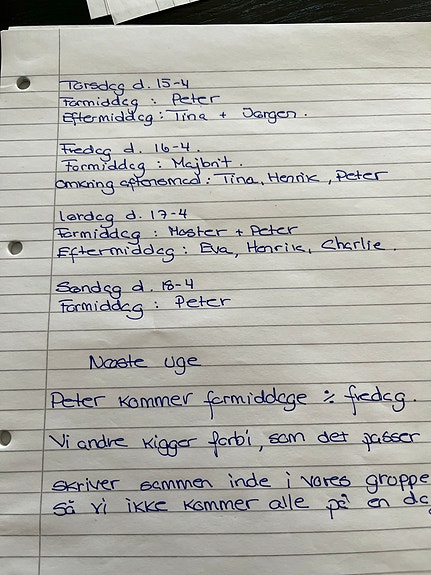 Torsdag d. 15-4
Formiddag : Peter
Eftermiddag : Tina + Jørgen.
Fredag d. 16-4.
Formiddag : Majbrit.
Omkring aftensmad : Tina, Henrik, Peter
Lørdag d. 17-4
Formiddag : Moster + Peter
Eftermiddag : Eva, Henrik, Charlie.
Søndag d. 18-4
Formiddag : Peter
Næste uge
Peter kommer formiddage ÷ fredag.
Vi andre kigger forbi, som det passer
skriver sammen inde i vores gruppe
så vi ikke kommer alle på en